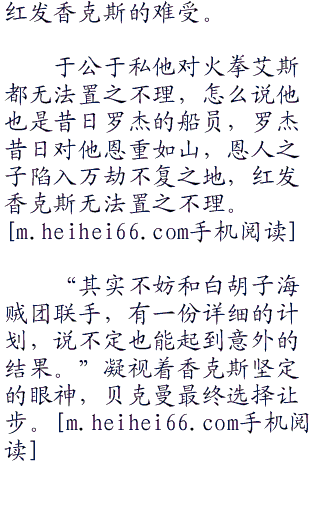 红发香克斯的难受。
于公于私他对火拳艾斯
都无法置之不理，怎么说他
也是昔日罗杰的船员，罗杰
昔日对他恩重如山，恩人之
子陷入万劫不复之地，红发
香克斯无法置之不理。
[m.heihei66.com手机阅读]
“其实不妨和白胡子海
贼团联手，有一份详细的计
划，说不定也能起到意外的
结果。”凝视着香克斯坚定
的眼神，贝克曼最终选择让
步。[m.heihei66.com手机阅
读]